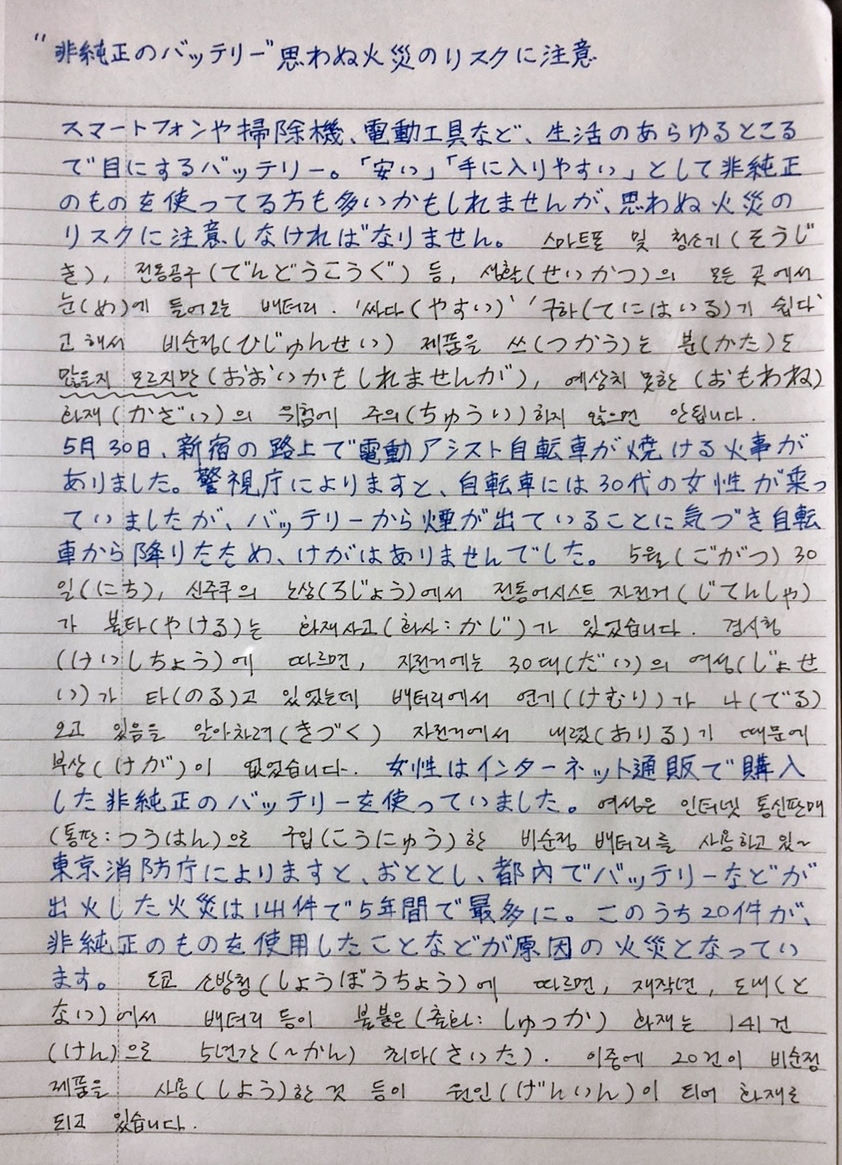 "非純正のバッテリー"思わぬ火災のリスクに注意
スマートフォンや掃除機、電動工具など、生活のあらゆるところ
で目にするバッテリー。「安い」「手に入りやすい」として非純正
のものを使ってる方も多いかもしれませんが、思わぬ火災の
リスクに注意しなければなりません。 스마트폰 및 청소기(そうじ
き), 전동공구(でんどうこうぐ) 등, 생활(せいかつ)의 모든 곳에서
눈(め)에 들어오는 배터리. '싸다(やすい)' '구하(てにはいる)기 쉽다'
고 해서 비순정(ひじゅんせい) 제품을 쓰(つかう)는 분(かた)도
많을지 모르지만(おおいかもしれませんが), 예상치 못한(おもわね)
화재(かざい)의 위험에 주의(ちゅうい)하지 않으면 안됩니다.
5月30日、新宿の路上で電動アシスト自転車が焼ける火事が
ありました。警視庁によりますと、自転車には30代の女性が乗っ
ていましたが、バッテリーから煙が出ていることに気づき自転
車から降りたため、けがはありませんでした。 5월(ごがつ) 30
일(にち), 신주쿠의 노상(ろじょう)에서 전동어시스트 자전거(じてんしゃ)
가 불타(やける)는 화재사고(화사:かじ)가 있었습니다. 경시청
(けいしちょう)에 따르면, 자전거에는 30대(だい)의 여성(じょせ
い)가 타(のる)고 있었는데 배터리에서 연기(けむり)가 나(でる)
오고 있음을 알아차려(きづく) 자전거에서 내렸(おりる)기 때문에
부상(けが)이 없었습니다. 女性はインターネット通販で購入
した非純正のバッテリーを使っていました。 여성은 인터넷 통신판매
(통판:つうはん)으로 구입(こうにゅう)한 비순정 배터리를 사용하고 있~
東京消防庁によりますと、おととし、都内でバッテリーなどが
出火した火災は141件で5年間で最多に。このうち20件が、
非純正のものを使用したことなどが原因の火災となってい
ます。 도쿄 소방청(しょうぼうちょう)에 따르면, 재작년, 도내(と
ない)에서 배터리 등이 불붙은(출화:しゅっか) 화재는 141건
(けん)으로 5년간(~かん) 최다(さいた). 이중에 20건이 비순정
제품을 사용(しよう)한 것 등이 원인(げんいん)이 되어 화재로
되고 있습니다.